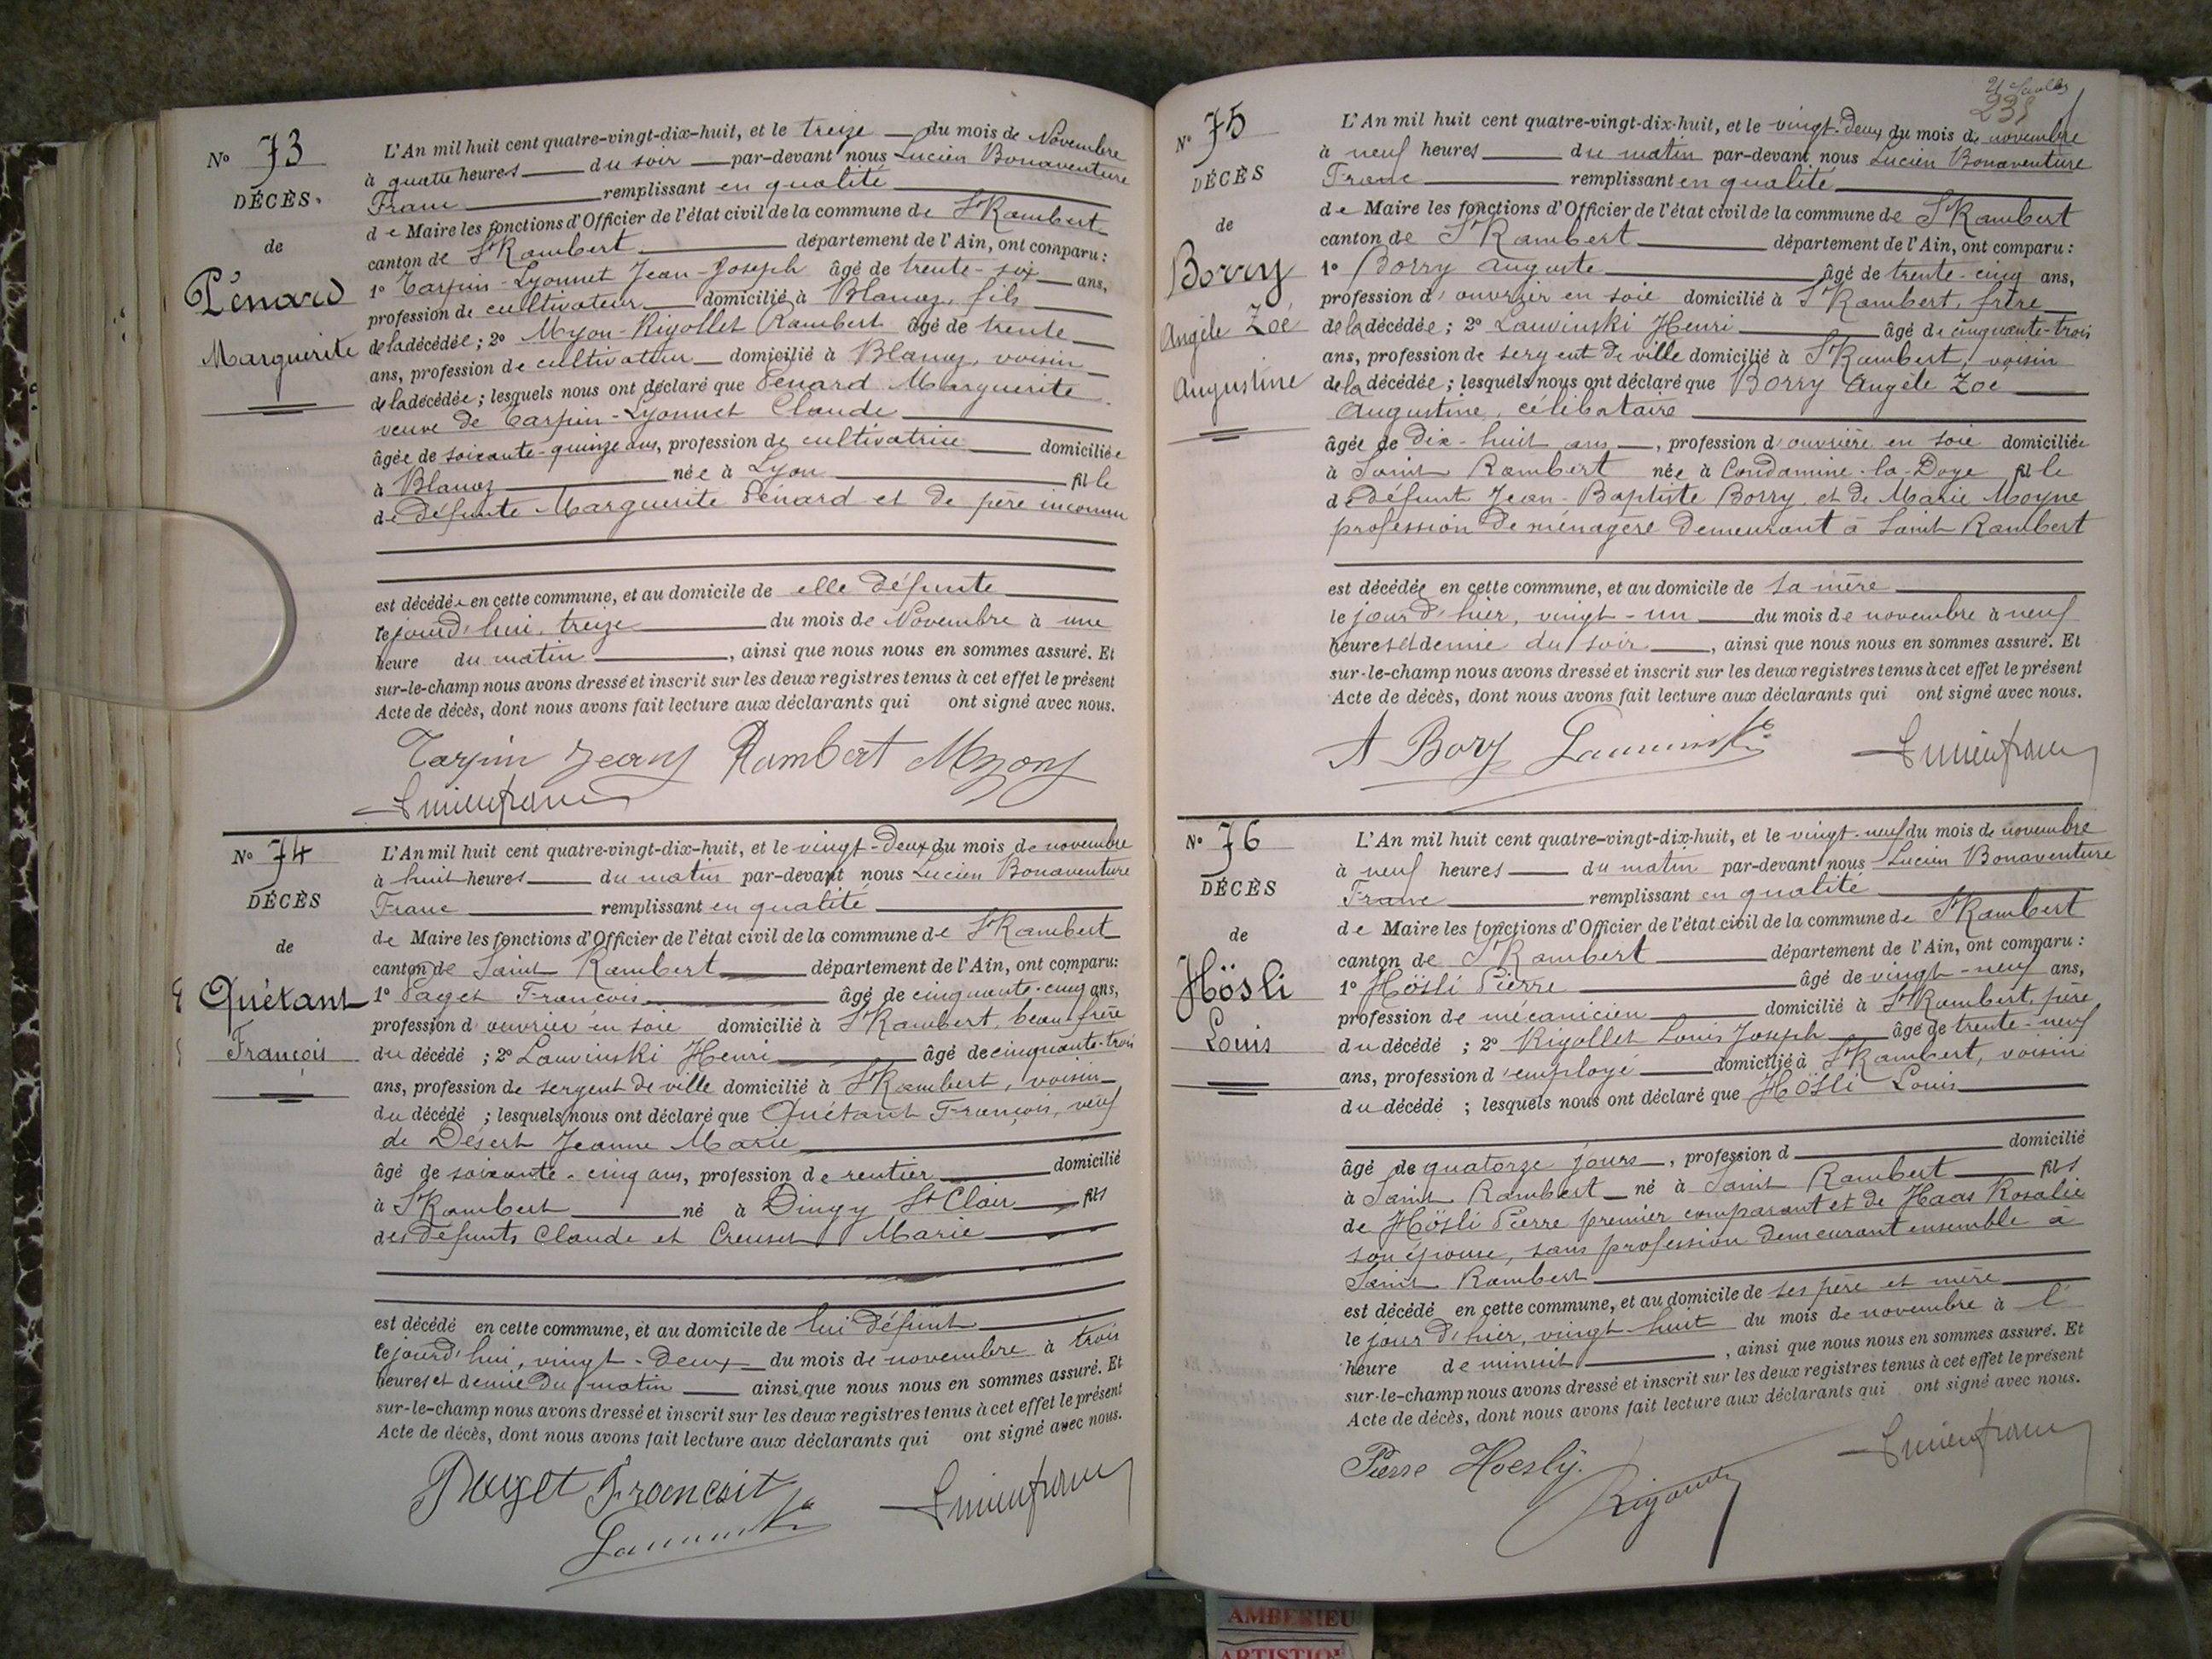 No 73
DÉCÈS
de
Pénard
Marguerite
L'An mil huit cent quatre-vingt-dix-huit, et le treize du mois de Novembre
à quatre heures du soir par-devant nous Lucien Bonaventure
Franc remplissant en qualité
de Maire les fonctions d'Officier de l'état civil de la commune de St Rambert
canton de St Rambert département de l'Ain, ont comparu :
1o Tarpin-Lyonnet Jean-Joseph âgé de trente-six ans,
profession de cultivateur domicilié à Blanaz, fils
de la décédée ; 2o Myon-Rigollet Rambert âgé de trente
ans, profession de cultivateur domicilié à Blanaz, voisin
de la décédée ; lesquels nous ont déclaré que Pénard Marguerite
veuve de Tarpin-Lyonnet Claude
âgée de soixante-quinze ans, profession de cultivatrice domiciliée
à Blanaz née à Lyon fille
de défunte Marguerite Pénard et de père inconnu
est décédée en cette commune, et au domicile de elle défunte
le jourd'hui, treize du mois de Novembre à une
heure du matin, ainsi que nous nous en sommes assuré. Et
sur-le-champ nous avons dressé et inscrit sur les deux registres tenus à cet effet le présent
Acte de décès, dont nous avons fait lecture aux déclarants qui ont signé avec nous.
Tarpin Jean Rambert Myon
Lucien franc
No 74
DÉCÈS
de
Quétant
François
L'An mil huit cent quatre-vingt-dix-huit, et le vingt-deux du mois de novembre
à huit heures du matin par-devant nous Lucien Bonaventure
Franc remplissant en qualité
de Maire les fonctions d'Officier de l'état civil de la commune de St Rambert
canton de Saint Rambert département de l'Ain, ont comparu :
1o Paget François âgé de cinquante-cinq ans,
profession d'ouvrier en soie domicilié à St Rambert, beau frère
du décédé ; 2o Lauvinski Henri âgé de cinquante-trois
ans, profession de sergent de ville domicilié à St Rambert, voisin
du décédé ; lesquels nous ont déclaré que Quétant François, veuf
de Désert Jeanne Marie
âgé de soixante-cinq ans, profession de rentier domicilié
à St Rambert né à Dingy St Clair fils
des défunts Claude et Creuset Marie
est décédé en cette commune, et au domicile de lui défunt
le jourd'hui, vingt-deux du mois de novembre à trois
heures et demie du matin ainsi que nous nous en sommes assuré. Et
sur-le-champ nous avons dressé et inscrit sur les deux registres tenus à cet effet le présent
Acte de décès, dont nous avons fait lecture aux déclarants qui ont signé avec nous.
Paget Francois
Lauvinski Lucien franc
238
No 75
DÉCÈS
de
Borry
Angèle Zoé
Augustine
L'An mil huit cent quatre-vingt-dix-huit, et le vingt-deux du mois de novembre
à neuf heures du matin par-devant nous Lucien Bonaventure
Franc remplissant en qualité
de Maire les fonctions d'Officier de l'état civil de la commune de St Rambert
canton de St Rambert département de l'Ain, ont comparu :
1o Borry Auguste âgé de trente-cinq ans,
profession d'ouvrier en soie domicilié à St Rambert, frère
de la décédée ; 2o Lauvinski Henri âgé de cinquante-trois
ans, profession de sergent de ville domicilié à St Rambert, voisin
de la décédée ; lesquels nous ont déclaré que Borry Angèle Zoé
Augustine, célibataire
âgée de dix-huit ans, profession d'ouvrière en soie domiciliée
à Saint Rambert née à Condamine-la-Doye fille
de défunt Jean-Baptiste Borry et de Marie Moyne
profession de ménagère demeurant à Saint Rambert
est décédée en cette commune, et au domicile de sa mère
le jour d'hier, vingt-un du mois de novembre à neuf
heures et demie du soir, ainsi que nous nous en sommes assuré. Et
sur-le-champ nous avons dressé et inscrit sur les deux registres tenus à cet effet le présent
Acte de décès, dont nous avons fait lecture aux déclarants qui ont signé avec nous.
A Bory Lauvinski Lucien franc
No 76
DÉCÈS
de
Hösli
Louis
L'An mil huit cent quatre-vingt-dix-huit, et le vingt-neuf du mois de novembre
à neuf heures du matin par-devant nous Lucien Bonaventure
Franc remplissant en qualité
de Maire les fonctions d'Officier de l'état civil de la commune de St Rambert
canton de St Rambert département de l'Ain, ont comparu :
1o Hösli Pierre âgé de vingt-neuf ans,
profession de mécanicien domicilié à St Rambert, père
du décédé ; 2o Rigollet Louis Joseph âgé de trente-neuf
ans, profession d'employé domicilié à St Rambert, voisin
du décédé ; lesquels nous ont déclaré que Hösli Louis
âgé de quatorze jours, profession d domicilié
à Saint Rambert né à Saint Rambert fils
de Hösli Pierre premier comparant et de Haas Rosalie
son épouse, sans profession demeurant ensemble à
Saint Rambert
est décédé en cette commune, et au domicile de ses père et mère
le jour d'hier, vingt-huit du mois de novembre à l'
heure de minuit, ainsi que nous nous en sommes assuré. Et
sur-le-champ nous avons dressé et inscrit sur les deux registres tenus à cet effet le présent
Acte de décès, dont nous avons fait lecture aux déclarants qui ont signé avec nous.
Pierre Hoesly. Lucien franc
AMBERIEU